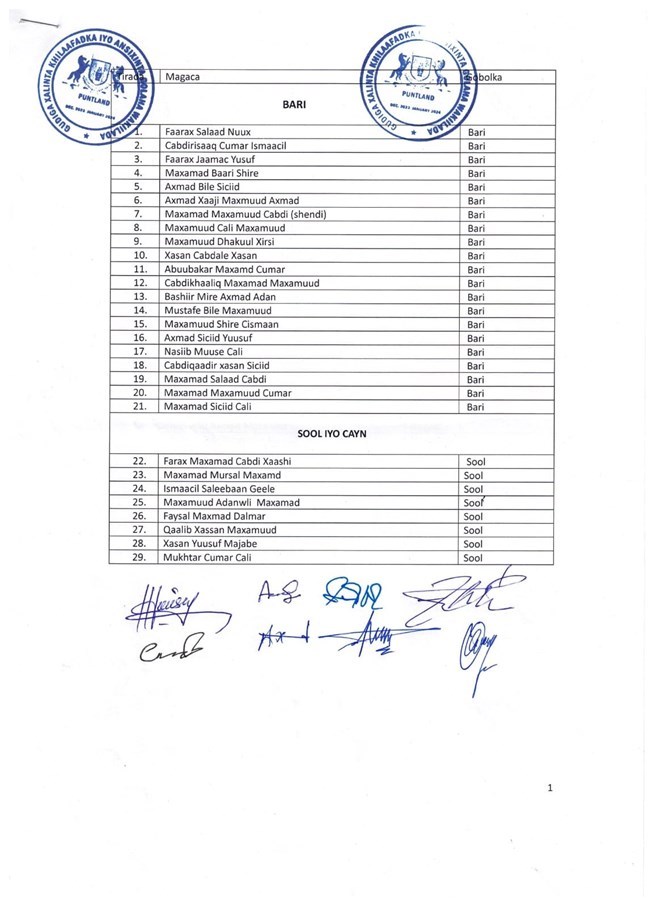 GUDIGA XALINTA KHILAAFADKA IYO ANSIXINTA GOLAHA WAKIILADA
PUNTLAND
DEC. 2023 JANUARY 2024
GUDIGA XALINTA KHILAAFADKA IYO ANSIXINTA GOLAHA WAKIILADA
PUNTLAND
DEC. 2023 JANUARY 2024
Tirada Magaca Gobolka
BARI
1. Faarax Salaad Nuux Bari
2. Cabdirisaaq Cumar Ismaacil Bari
3. Faarax Jaamac Yusuf Bari
4. Maxamad Baari Shire Bari
5. Axmad Bile Siciid Bari
6. Axmad Xaaji Maxmuud Axmad Bari
7. Maxamad Maxamuud Cabdi (shendi) Bari
8. Maxamuud Cali Maxamuud Bari
9. Maxamuud Dhakuul Xirsi Bari
10. Xasan Cabdale Xasan Bari
11. Abuubakar Maxamd Cumar Bari
12. Cabdikhaaliq Maxamad Maxamuud Bari
13. Bashiir Mire Axmad Adan Bari
14. Mustafe Bile Maxamuud Bari
15. Maxamuud Shire Cismaan Bari
16. Axmad Siciid Yuusuf Bari
17. Nasiib Muuse Cali Bari
18. Cabdiqaadir xasan Siciid Bari
19. Maxamad Salaad Cabdi Bari
20. Maxamad Maxamuud Cumar Bari
21. Maxamad Siciid Cali Bari
SOOL IYO CAYN
22. Farax Maxamad Cabdi Xaashi Sool
23. Maxamad Mursal Maxamd Sool
24. Ismaacil Saleebaan Geele Sool
25. Maxamuud Adanwli Maxamad Sool
26. Faysal Maxmad Dalmar Sool
27. Qaalib Xassan Maxamuud Sool
28. Xasan Yuusuf Majabe Sool
29. Mukhtar Cumar Cali Sool
1